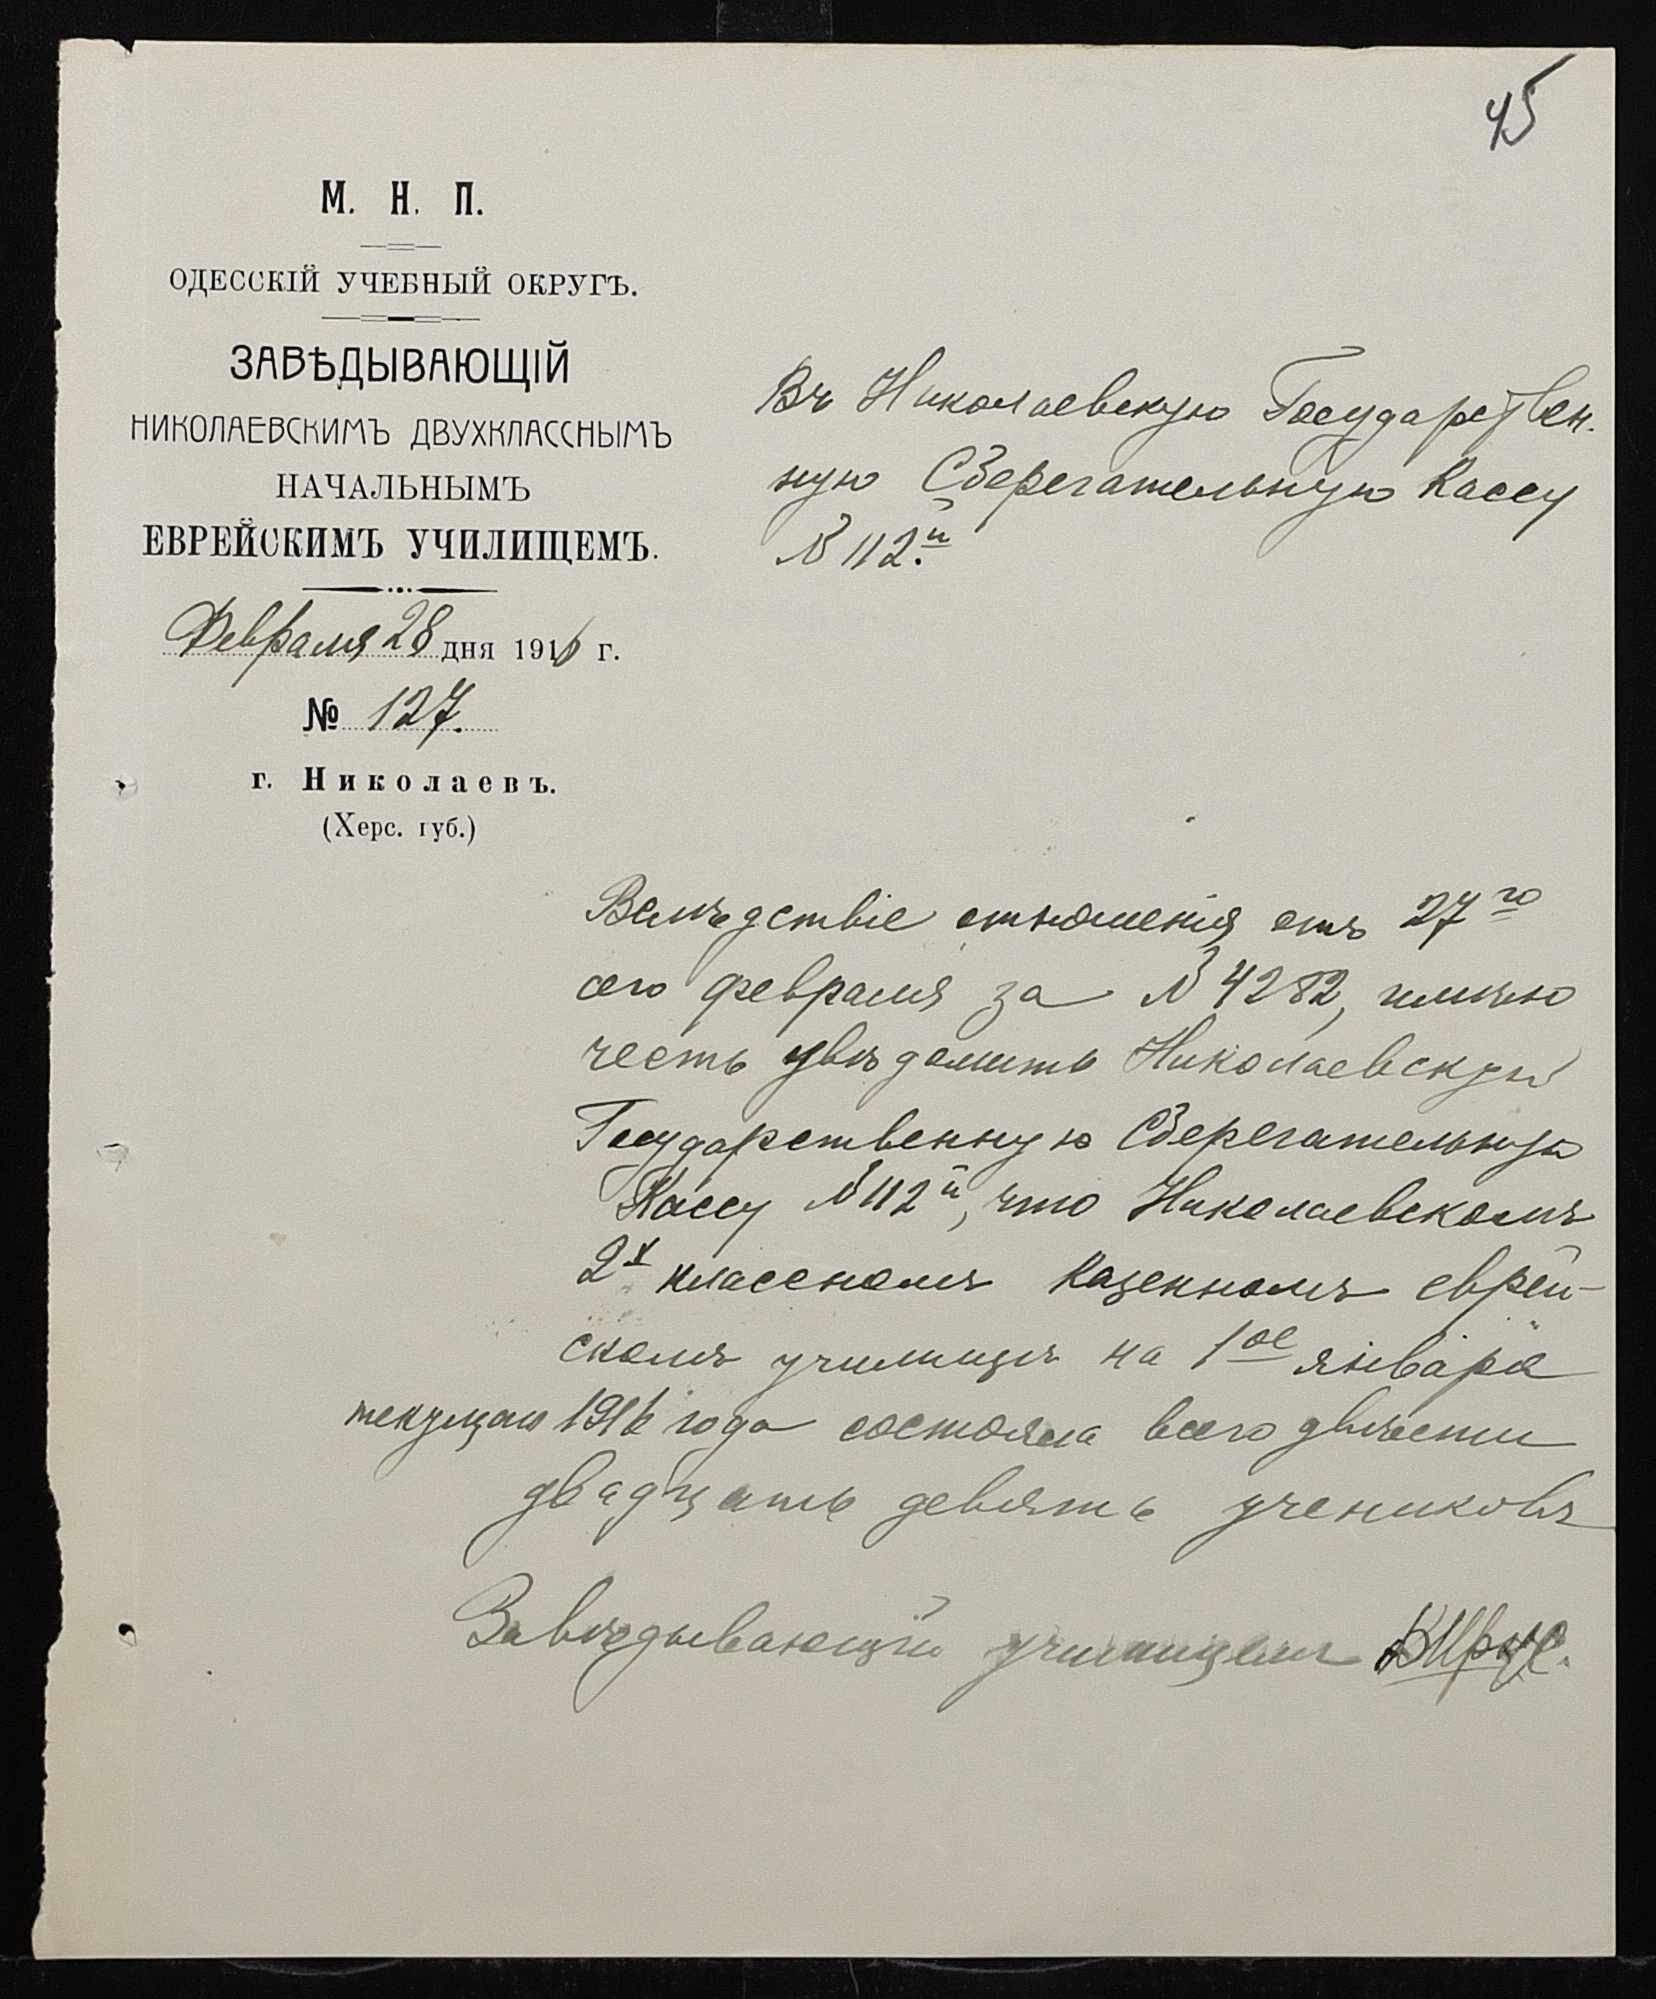 45
М. Н. П.
ОДЕССКІЙ УЧЕБНЫЙ ОКРУГЪ.
ЗАВѢДЫВАЮЩІЙ
НИКОЛАЕВСКИМЪ ДВУХКЛАССНЫМЪ
НАЧАЛЬНЫМЪ
ЕВРЕЙСКИМЪ УЧИЛИЩЕМЪ.
Февраля 28 дня 1916 г.
№ 127.
г. Николаевъ.
(Херс. губ.)
Въ Николаевскую Государствен-
ную Сберегательную Кассу
№ 112й.
Вслѣдствіе отношенія отъ 27го
сего февраля за № 4282, имѣю
честь увѣдомить Николаевскую
Государственную Сберегательную
Кассу № 112й, что Николаевскомъ
2х классномъ казенномъ еврей-
скомъ училищѣ на 1ое января
текущаго 1916 года состояла всего двѣсти
двадцать девять учениковъ
Завѣдывающій училищемъ